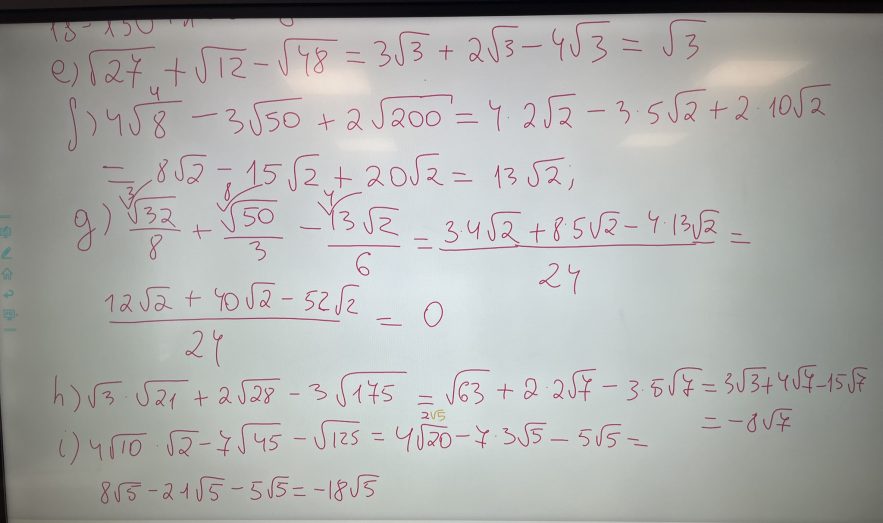 e) √27 + √12 - √48 = 3√3 + 2√3 - 4√3 = √3
f) 4√8 - 3√50 + 2√200 = 4·2√2 - 3·5√2 + 2·10√2
= 8√2 - 15√2 + 20√2 = 13√2;
g) √32/8 + √50/3 - 13√2/6 = (3·4√2 + 8·5√2 - 4·13√2)/24 =
(12√2 + 40√2 - 52√2)/24 = 0
h) √3·√21 + 2√28 - 3√175 = √63 + 2·2√7 - 3·5√7 = 3√3 + 4√7 - 15√7
= -8√7
2√5
i) 4√10·√2 - 7√45 - √125 = 4√20 - 7·3√5 - 5√5 =
8√5 - 21√5 - 5√5 = -18√5